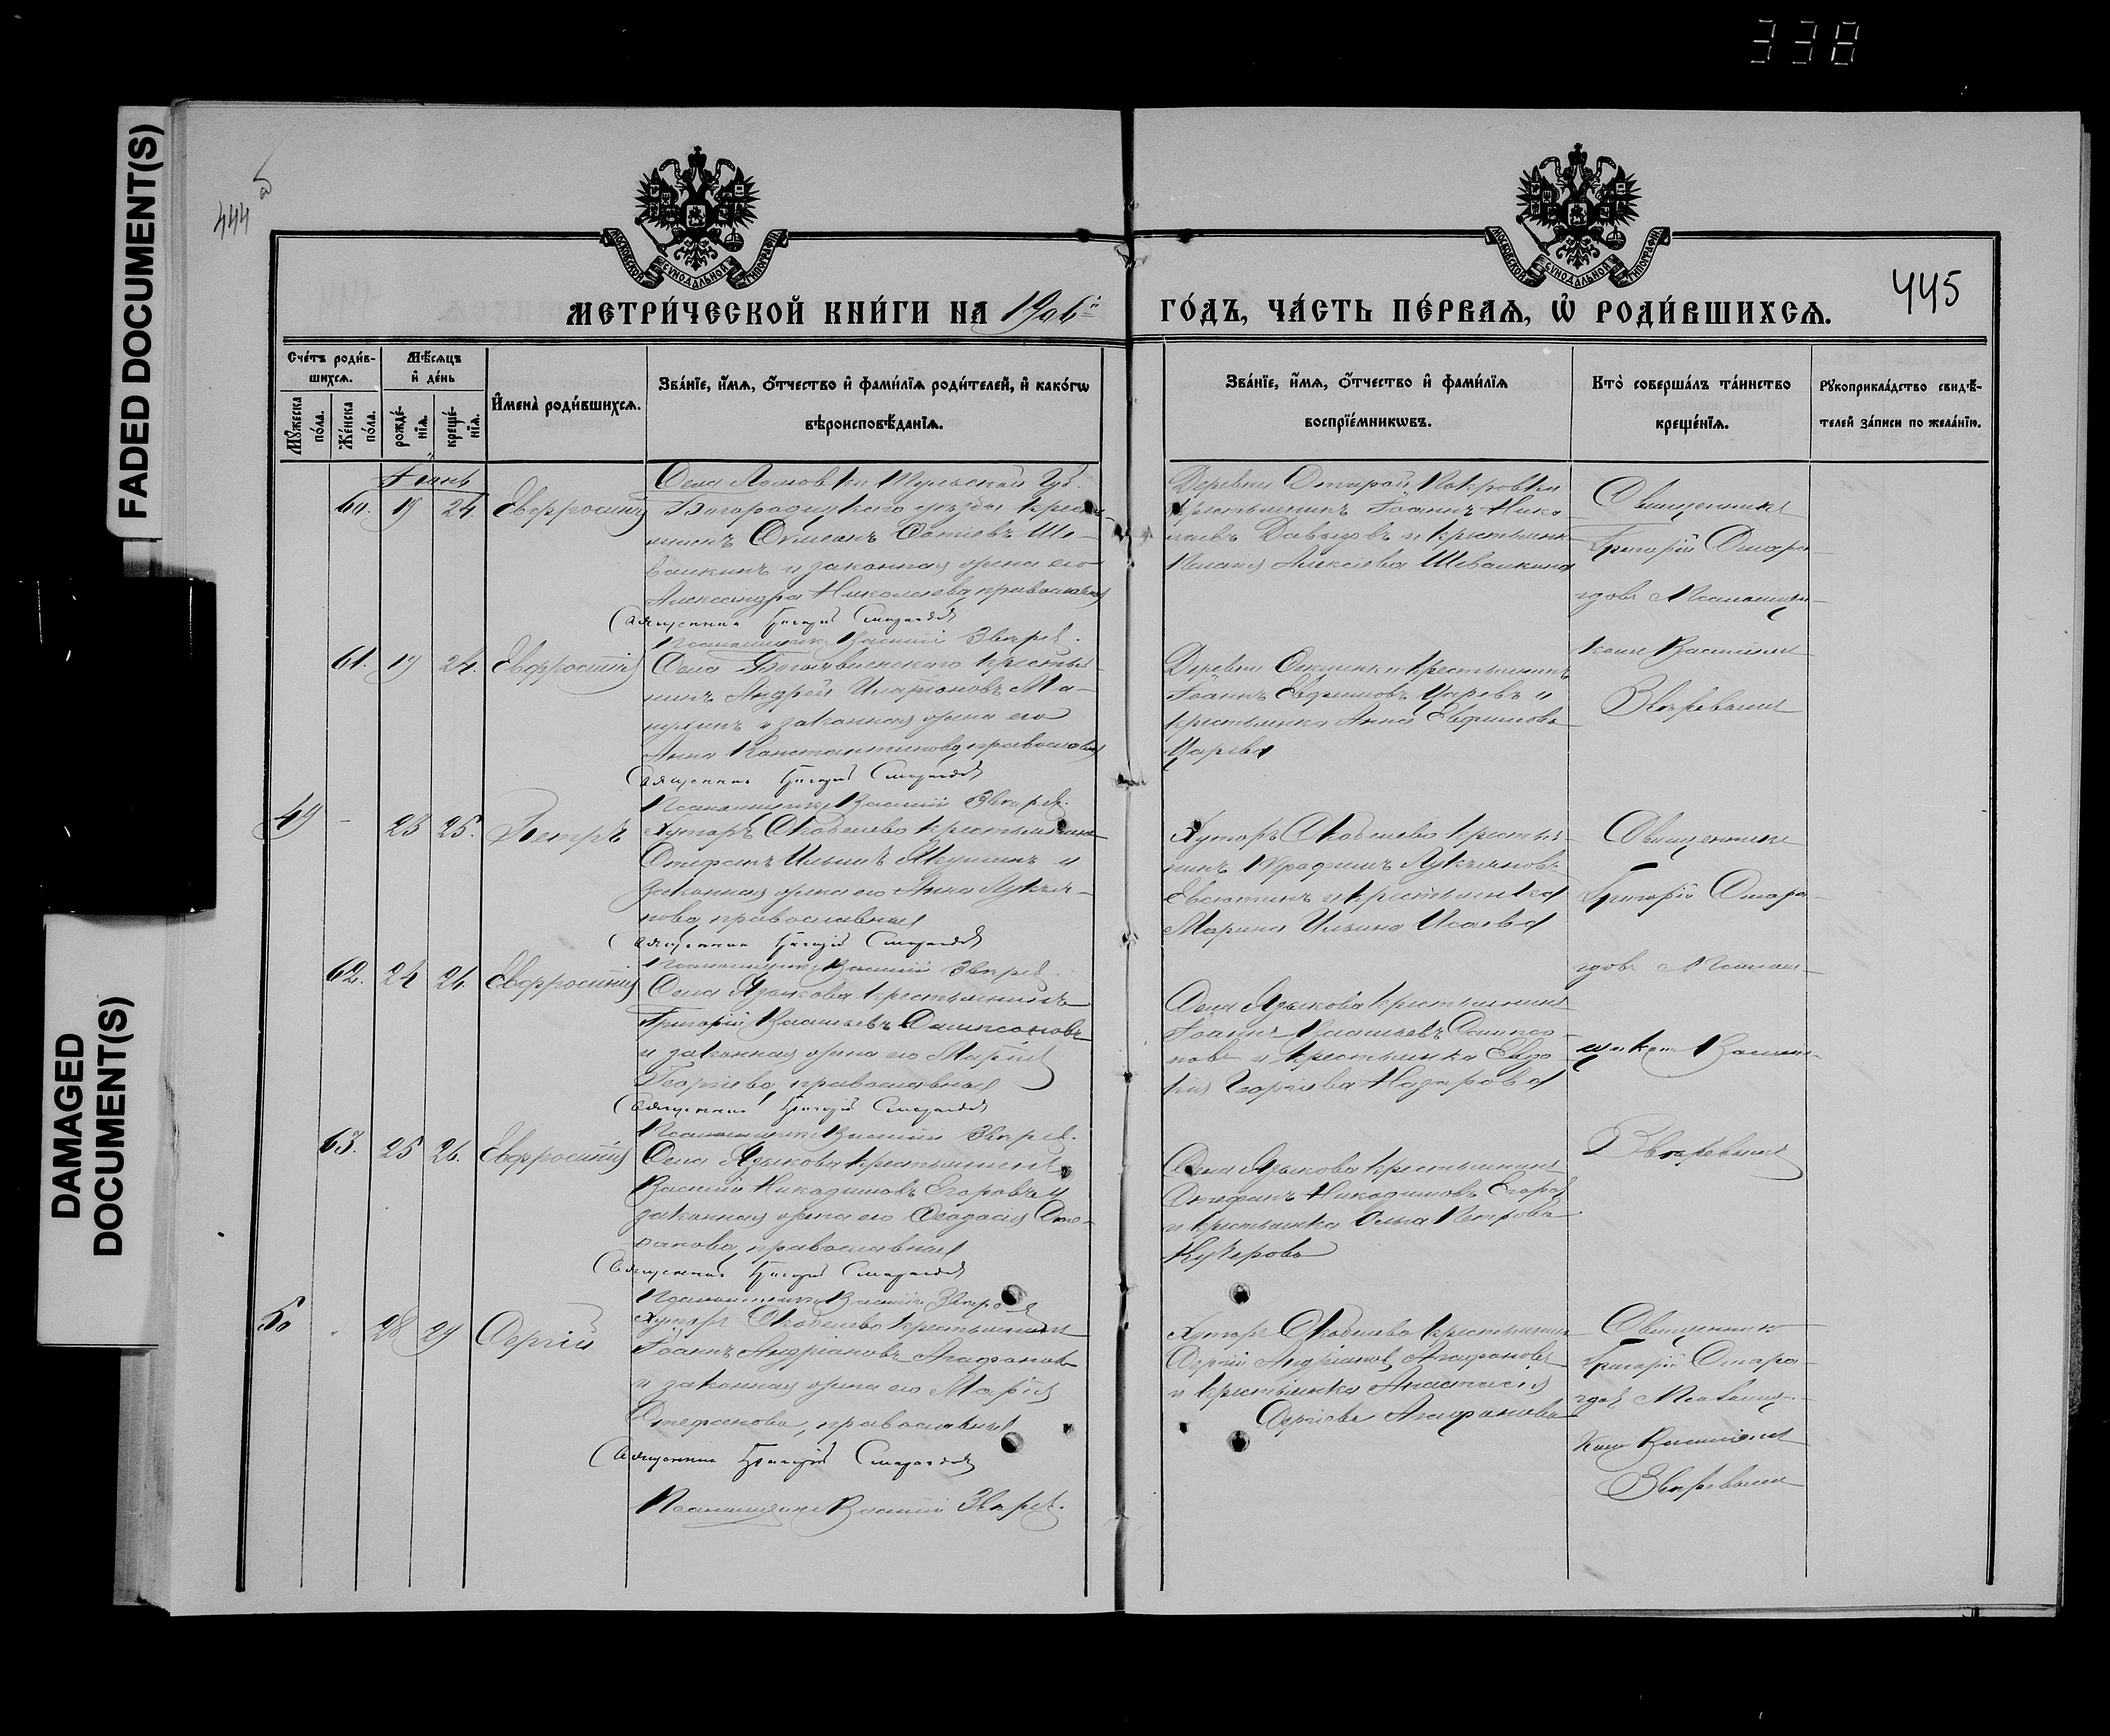 338
FADED DOCUMENT(S)
DAMAGED
DOCUMENT(S)
444
445
МОСКОВСКОЙ СУНОДАЛЬНОЙ ТИПОГРАФІИ
МОСКОВСКОЙ СУНОДАЛЬНОЙ ТИПОГРАФІИ
МЕТРИ́ЧЕСКОЙ КНИ́ГИ НА 1906й
ГО́ДЪ, ЧА́СТЬ ПЕ́РВАѦ, Ѡ҆ РОДИ́ВШИХСѦ.
Сче́тъ роди́в-
шихсѧ.
Мꙋ́жеска по́ла.
Же́нска по́ла.
Мѣ́сѧцъ
и҆ де́нь
рожде́-
нїѧ.
креще́-
нїѧ.
И҆мена̀ роди́вшихсѧ.
Зва́нїе, и҆́мѧ, ѻ҆́тчество и҆ фами́лїѧ роди́телей, и҆ како́гѡ
вѣроисповѣ́данїѧ.
Зва́нїе, и҆́мѧ, ѻ҆́тчество и҆ фами́лїѧ
воспрїе́мникѡвъ.
Кто̀ соверша́лъ та́инство
креще́нїѧ.
Рꙋкоприкла́дство свидѣ́-
телей за́писи по жела́нїю.
Іюнь
60. 19 24. Евфросинія
Села Тульской Губ.
Богородицкаго уѣзда кресть-
янинъ Ше-
валкинъ и законная жена его
Александра Николаева, православныя
Священникъ Григорій Смарагдовъ
Псаломщикъ Василій Звѣревъ.
Деревни Старой Покровки
крестьянинъ Іоаннъ Нико-
лаевъ Давыдовъ и крестьянка
Пелагія Алексіева Шевалкина
Священникъ
Григорій Смара-
гдовъ Псаломщи-
комъ Василіемъ
Звѣревымъ
61. 19 24. Евфросинія
Села Богоявленскаго крестья-
нинъ Андрей
и законная жена его
Анна Константинова, православныя
Священникъ Григорій Смарагдовъ
Псаломщикъ Василій Звѣревъ.
Деревни крестьянинъ
Іоаннъ Евфимовъ Царевъ и
крестьянка Анна Евфимова
Царева
49 - 23 25. Петръ
Хуторъ Скобелево крестьянинъ
Стефанъ Ильинъ Якушинъ и
законная жена его Анна Лукья-
нова, православныя
Священникъ Григорій Смарагдовъ
Псаломщикъ Василій Звѣревъ.
Хуторъ Скобелево крестья-
нинъ Трофимъ Лукьяновъ
Евсютинъ и крестьянка
Марина Ильина Исаева
Священникъ
Григорій Смара-
гдовъ Псалом-
щикомъ Василі-
Звѣревымъ
62. 24 26. Евфросинія
Села Языкова крестьянинъ
Григорій Васильевъ Сампсоновъ
и законная жена его Марія
Георгіева, православныя
Священникъ Григорій Смарагдовъ
Псаломщикъ Василій Звѣревъ.
Села Языкова крестьянинъ
Іоаннъ Васильевъ Сампсо-
новъ и крестьянка Евдо-
кія Георгіева Назарова
63. 25 26. Евфросинія
Села Языкова крестьянинъ
Василій Никодимовъ Егоровъ и
законная жена его Ѳеодосія Сте-
фанова, православныя
Священникъ Григорій Смарагдовъ
Псаломщикъ Василій Звѣревъ
Села Языкова крестьянинъ
Стефанъ Никодимовъ Егоровъ
и крестьянка Ольга Петрова
Кучерова
50 " 28 29 Сергій
Хуторъ Скобелево крестьянинъ
Іоаннъ Андріановъ Агафоновъ
и законная жена его Марія
Стефанова, православныя
Священникъ Григорій Смарагдовъ
Псаломщикъ Василій Звѣревъ.
Хуторъ Скобелево крестьянинъ
Сергій Андріановъ Агафоновъ
и крестьянка Анастасія
Сергіева Агафонова
Священникъ
Григорій Смара-
гдовъ Псаломщи-
комъ Василіемъ
Звѣревымъ